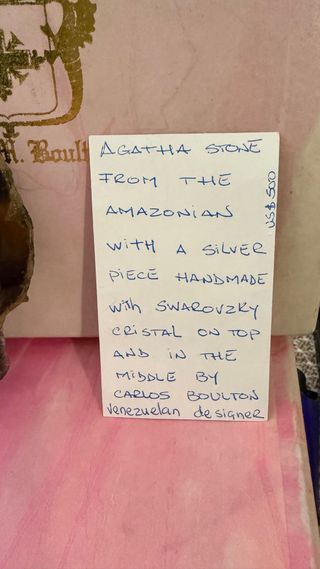 M. Boult
AGATHA STONE
FROM THE
AMAZONIAN
WITH A SILVER
PIECE HANDMADE
with SWAROVZKY
CRISTAL ON TOP
AND IN THE
MIDDLE BY
CARLOS BOULTON
Venezuelan designer
US$500